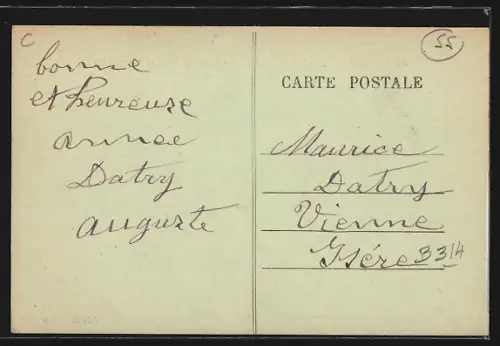 C
bonne
et heureuse
année
Datry
auguste
55
CARTE POSTALE
Maurice
Datry
Vienne
Isére
3314